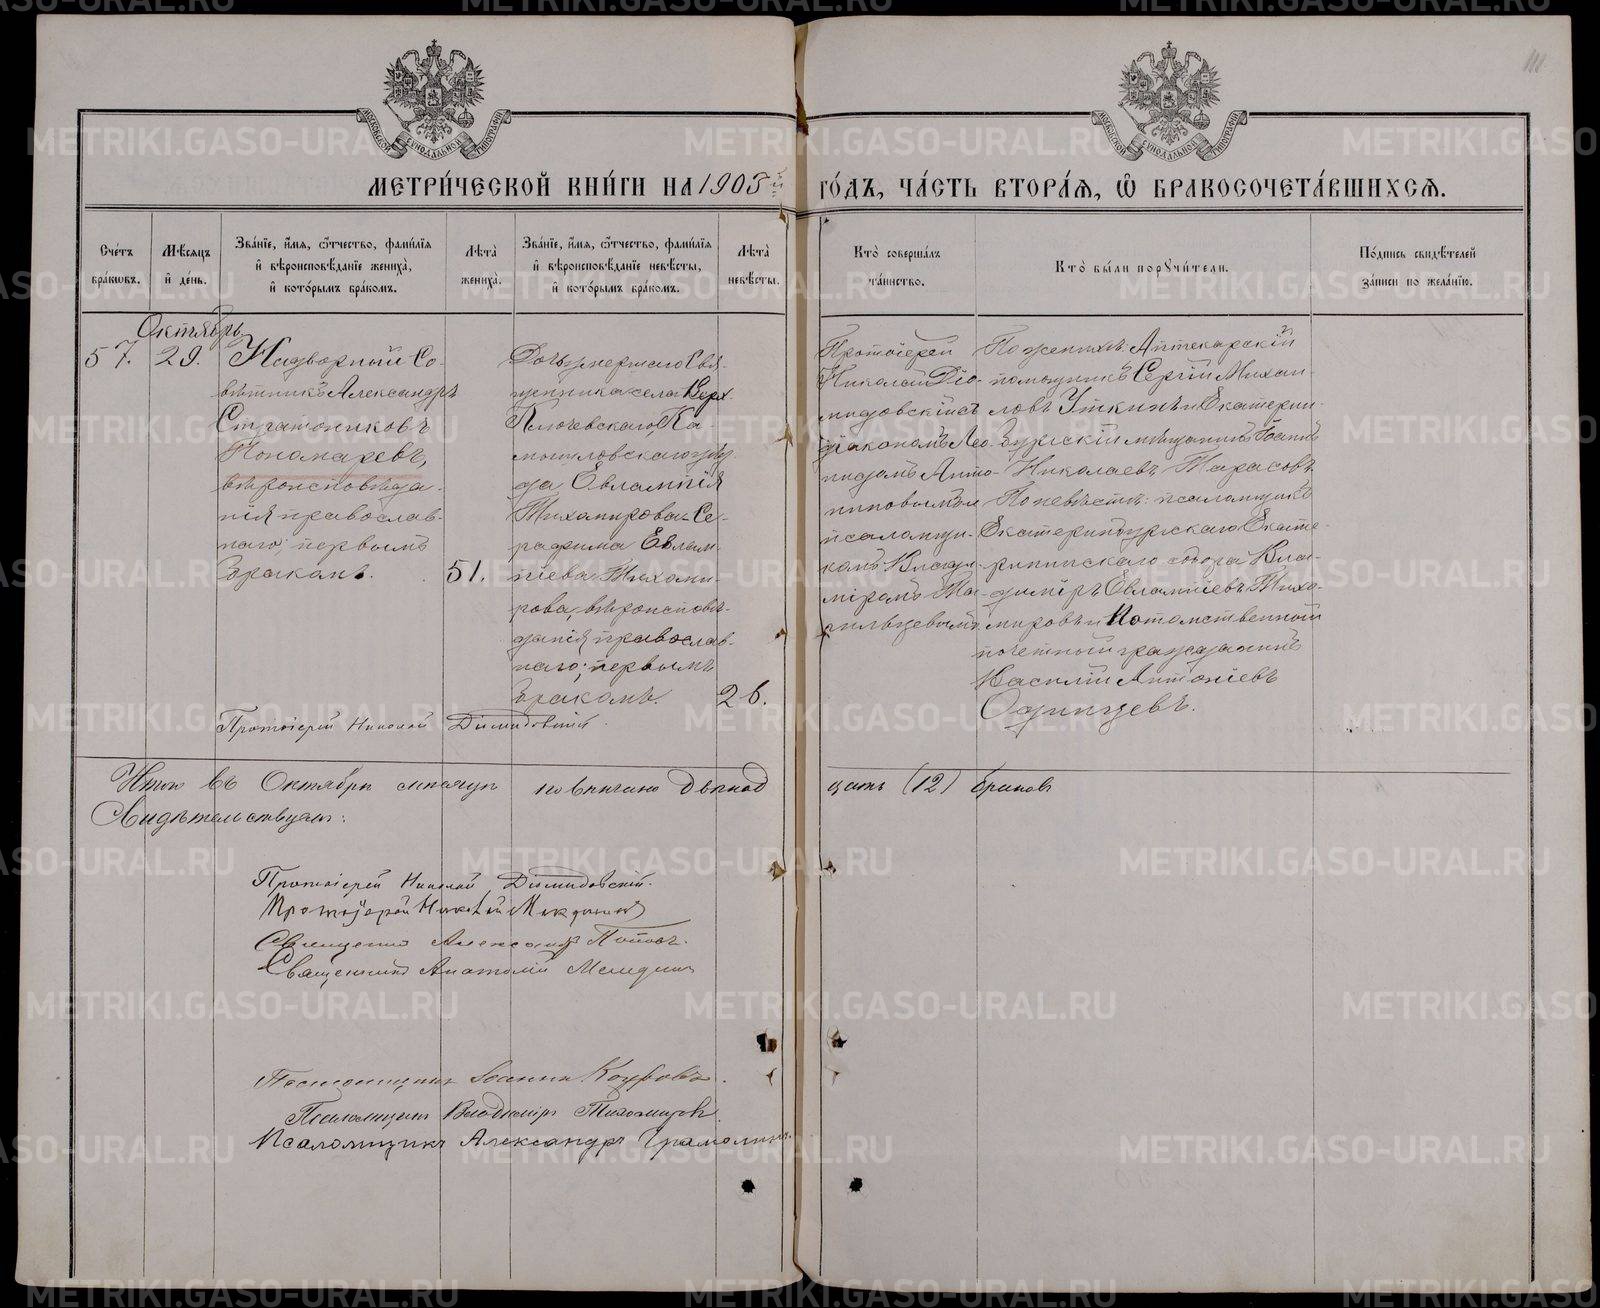 МЕТРИ́ЧЕСКОЙ КНИ́ГИ НА 1903й ГО́ДЪ, ЧА́СТЬ ВТОРА́Я, Ѽ БРАКОСОЧЕТА́ВШИХСЯ.
Сче́тъ бра́кωвъ.
Мѣ́сяцъ и҆ де́нь.
Зва́нїе, и҆́мя, ѻ҆́тчество, фами́лїя и҆ вѣроисповѣ́данїе жениха̀, и҆ кото́рымъ бра́комъ.
Лѣ́та̀ жениха̀.
Зва́нїе, и҆́мя, ѻ҆́тчество, фами́лїя и҆ вѣроисповѣ́данїе невѣ́сты, и҆ кото́рымъ бра́комъ.
Лѣ́та̀ невѣ́сты.
Кто̀ соверша́лъ та́инство.
Кто̀ бы́ли порꙋчи́тели.
По́дпись свидѣ́телей за́писи по жела́нїю.
Октябрь
57.
29.
Надворный Со-
вѣтникъ Александръ
Стратониковъ
Пономаревъ,
вѣроисповѣда-
нія православ-
наго; первымъ
бракомъ.
51.
Дочь умершаго Свя-
щенника села Верх-
Ключевскаго, Ка-
мышловскаго уѣз-
да Евлампія
Тихомирова Се-
рафима Евлам-
піева Тихоми-
рова, вѣроисповѣ-
данія православ-
наго; первымъ
бракомъ.
26.
Протоіерей
Николай Діо-
мидовскій съ
діакономъ Лео-
нидомъ Анто-
ниновымъ и
псаломщи-
комъ Влади-
міромъ
По женихѣ: Аптекарскій
помощникъ Сергій Михаи-
ловъ Уткинъ и Екатерин-
бургскій мѣщанинъ Іоаннъ
Николаевъ Тарасовъ
По невѣстѣ: псаломщикъ
Екатеринбургскаго Екате-
рининскаго собора Вла-
диміръ Евлампіевъ Тихо-
мировъ и Потомственный
почетный гражданинъ
Василій Антоніевъ
Одинцевъ.
Протоіерей Николай Діомидовскій.
Итого въ Октябрѣ мѣсяцѣ повѣнчано двѣнад
цать (12) браковъ
Свидѣтельствуютъ:
Протоіерей Николай Діомидовскій.
Протоіерей Николай
Священникъ Александръ Поповъ.
Священникъ Анатолій
Псаломщикъ Іоаннъ
Псаломщикъ Владиміръ Тихомировъ
Псаломщикъ Александръ
METRIKI.GASO-URAL.RU